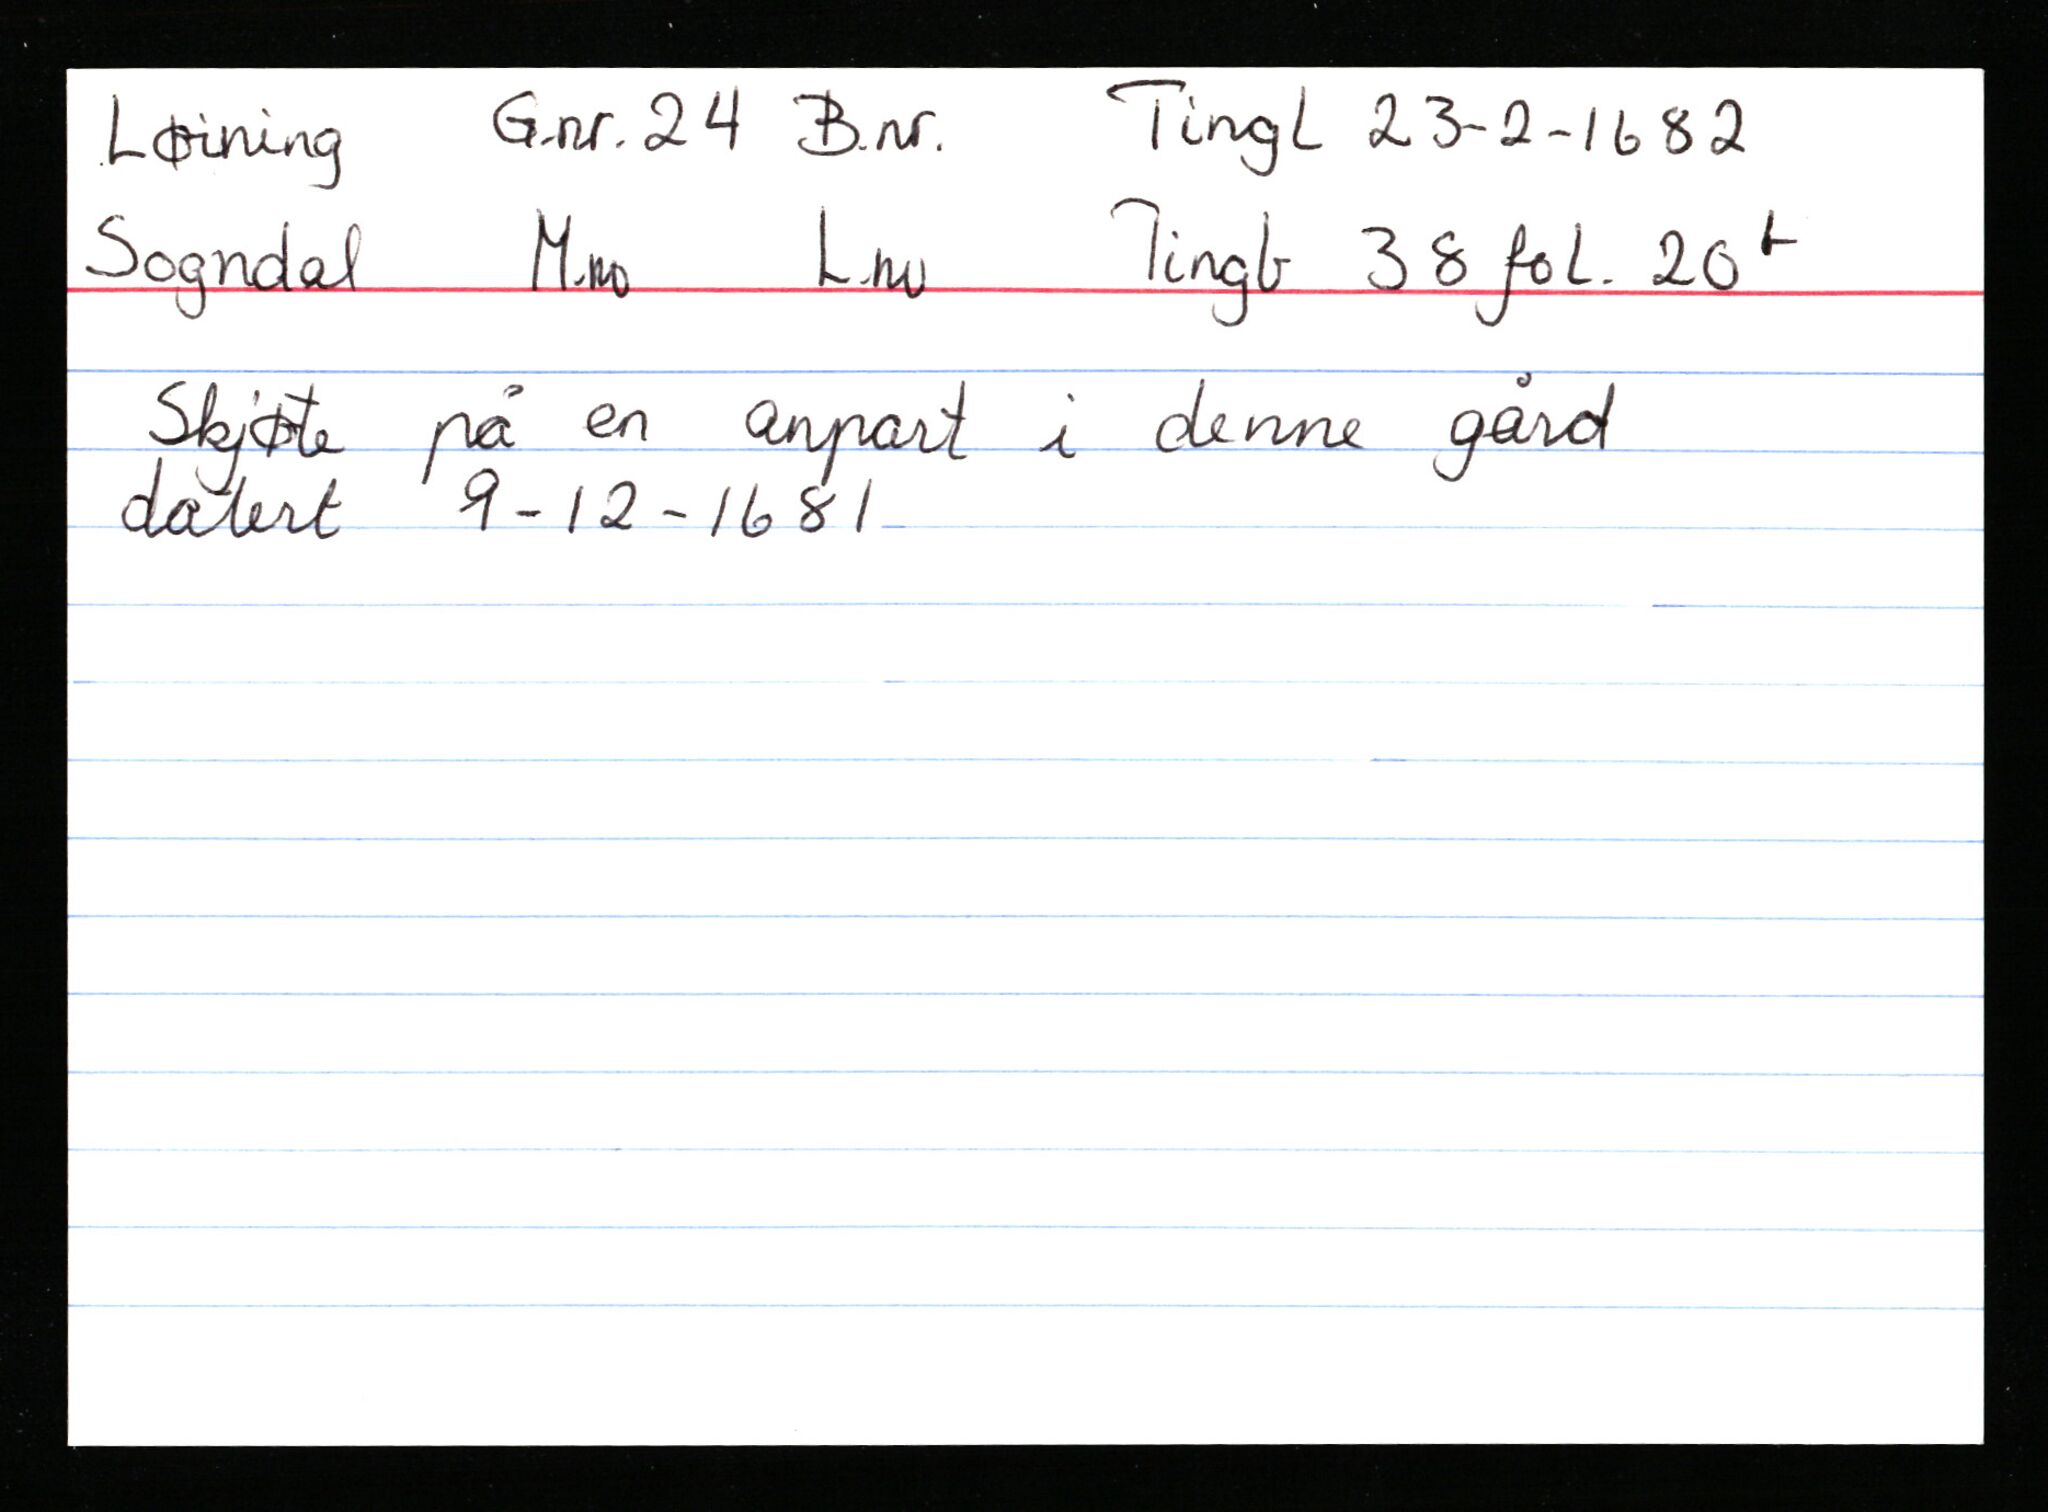 Løining G.nr. 24 B.nr. Tingl 23-2-1682
Sogndal M.no L.no Tingb 38 fol. 20 b
Skjøte på en anpart i denne gård
datert 9-12-1681